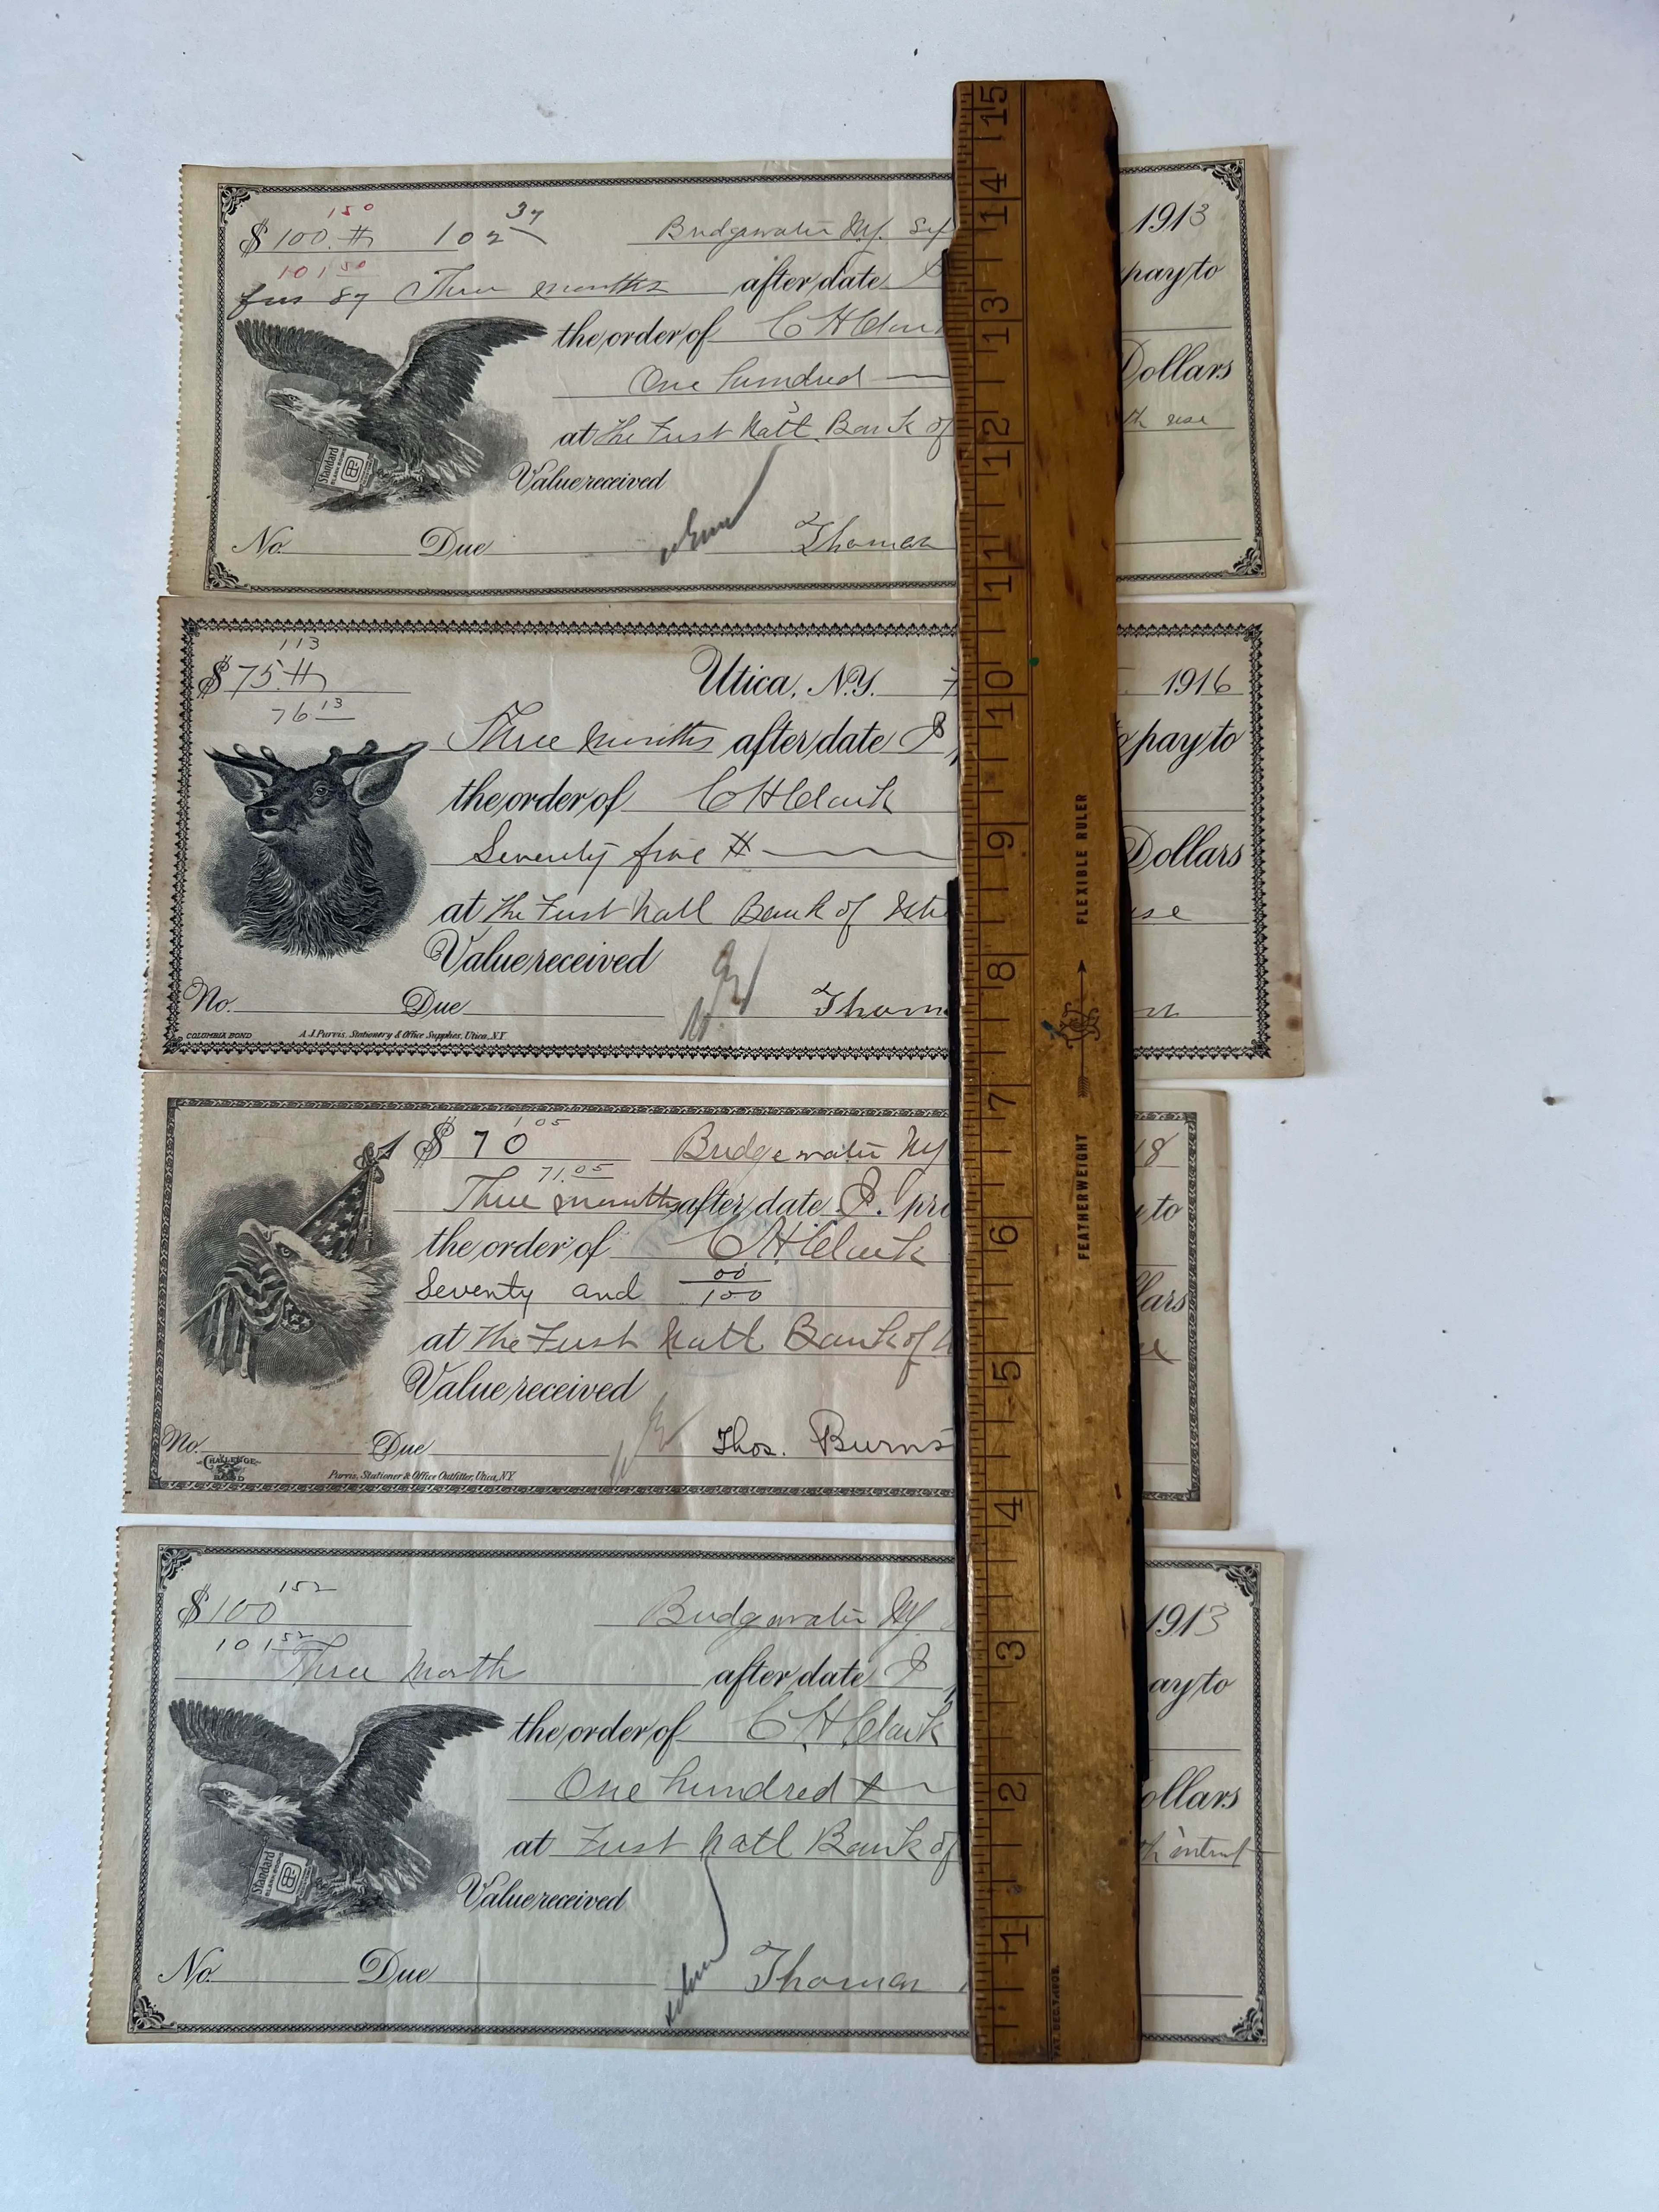 150
$100.# 102 37 Bridgewater Ny. Sep 1913
101 50
Three months after date pay to
the order of C H Clark
One hundred Dollars
at The First Natl. Bank of th use
Value received
Standard
No. Due Thomas
113
$75.# Utica, N.Y. 1916
76 13
Three months after date I pay to
the order of C H Clark
Seventy five # Dollars
at The First Natl Bank of use
Value received
No. Due Thom
COLUMBIA BOND A.J. Purvis, Stationery & Office Supplies, Utica, N.Y.
1 05
$70 Bridgewater Ny 18
71.05
Three months after date I pro to
the order of C H Clark
Seventy and 00/100 llars
at The First Natl Bank of
Value received
No. Due Thos. Burns
CHALLENGE BOND Purvis, Stationer & Office Outfitter, Utica, N.Y.
152
$100 Bridgewater Ny. 1913
101 52
Three Month after date I ay to
the order of C H Clark
One hundred ollars
at First Natl Bank of
Value received
Standard
No. Due Thomas
15
14 14
13 13
12 12
11 11
10 10
9
8
7
6
5
4
3
2
1
FLEXIBLE RULER
FEATHERWEIGHT